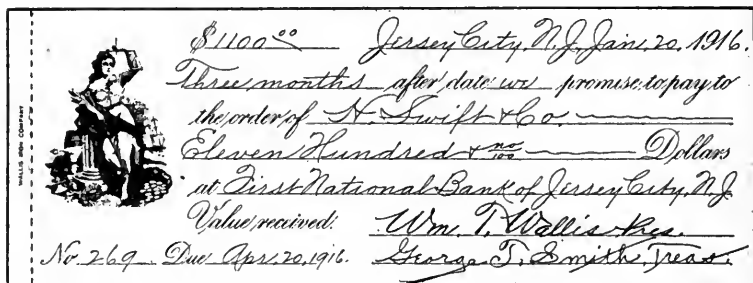 WALLIS IRON COMPANY
$1100 00 Jersey City, N.J. Jan. 20, 1916.
Three months after date we promise to pay to
the order of N. Swift & Co.
Eleven Hundred & no/100 Dollars
at First National Bank of Jersey City, N.J.
Value received. Wm. T. Wallis Pres.
No. 269 Due Apr. 20, 1916. George T. Smith, Treas.